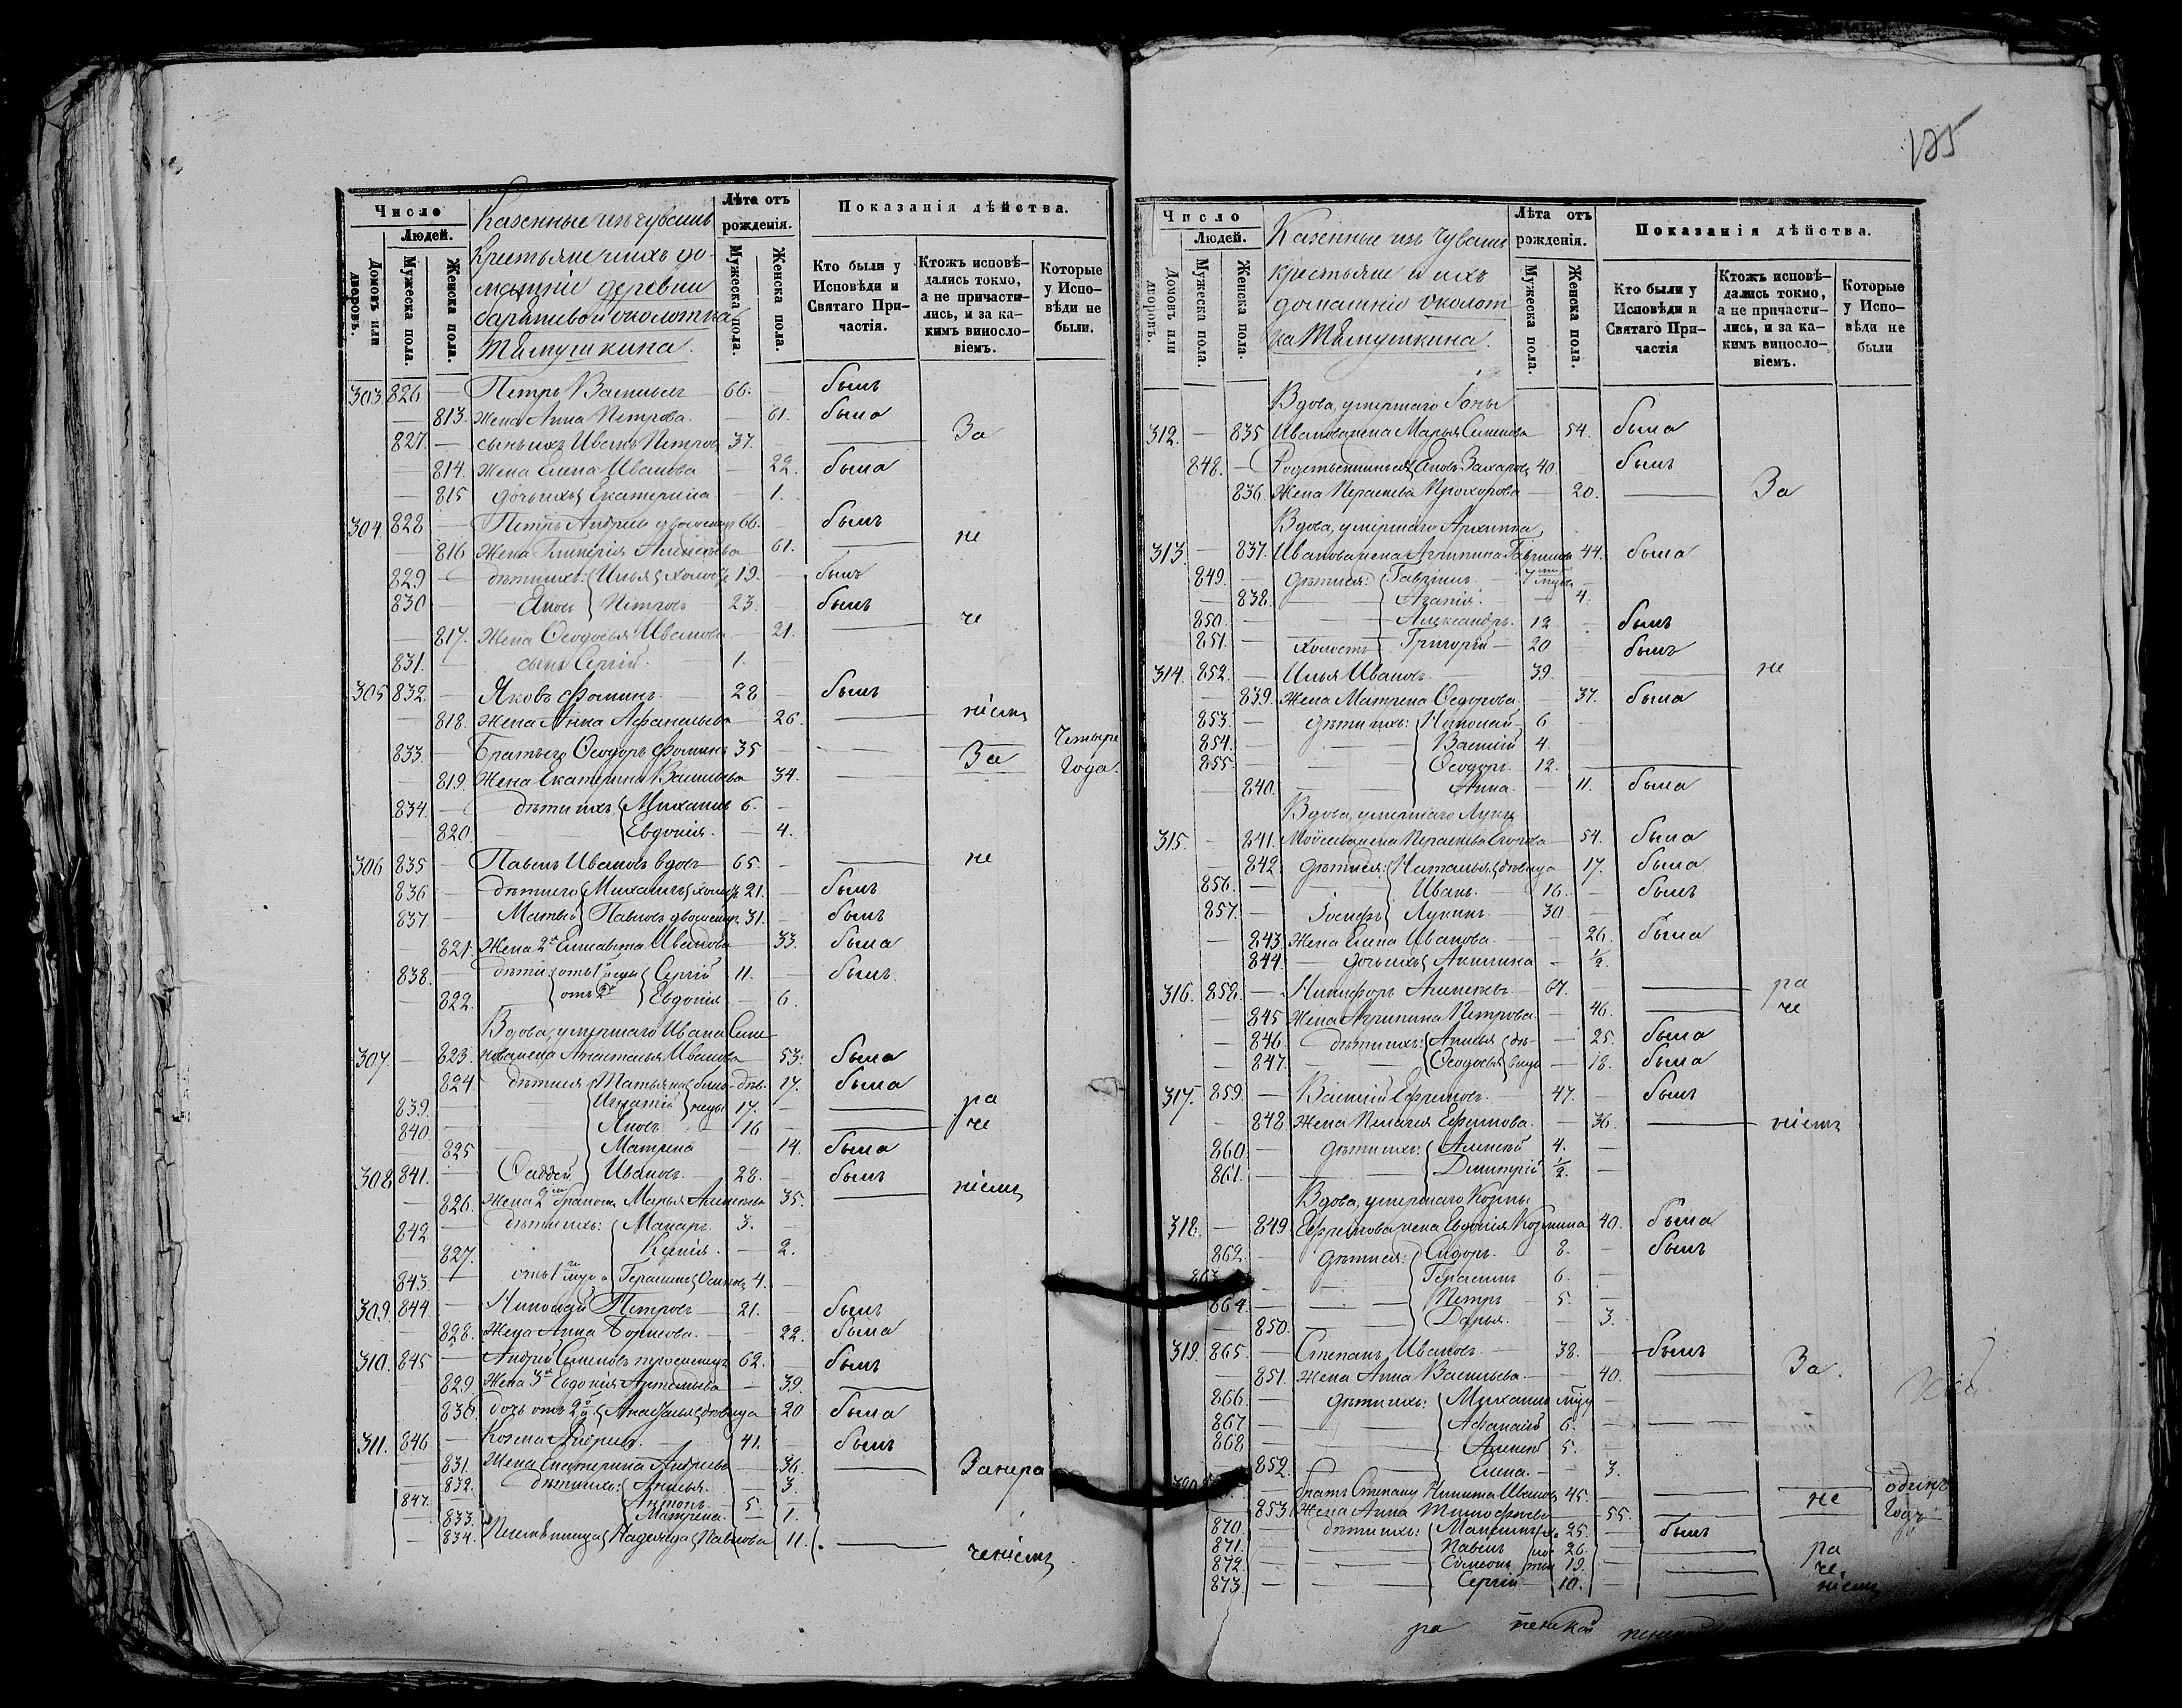 Число
Людей.
Домовъ или дворовъ.
Мужеска пола.
Женска пола.
Казенные изъ чувашъ
крестьяне и ихъ до-
машніе деревни
околотка
Тѣмушкина.
Лѣта отъ рожденія.
Мужеска пола.
Женска пола.
Показанія дѣйства.
Кто были у Исповѣди и Святаго Причастія.
Ктожъ исповѣдались токмо, а не причастились, и за какимъ винословіемъ.
Которые у Исповѣди не были.
303. 826 — Петръ Васильевъ 66. — былъ
— 813. Жена Анна Петрова. — 61. была
827. — сынъ ихъ Иванъ Петровъ 37. — За
— 814. Жена Елена Иванова — 22. была
— 815 дочь ихъ Екатерина — 1.
304. 828 — Петръ Андреевъ двоеженецъ 66. — былъ
— 816 Жена Гликерія Алексѣева — 61. — не
829 — дѣти ихъ: Илья холостъ 19. — былъ
830 — Яковъ Петровъ 23. — былъ
— 817. Жена Ѳеодосья Иванова — 21. — че
831. — сынъ Сергій. — 1.
305 832. — Яковъ Ѳоминъ. 28 — былъ
— 818. Жена Анна Афанасьева — 26. — ніемъ
833. — Братъ его Ѳеодоръ Ѳоминъ 35 — Четыре
— 819. Жена Екатерина Васильева — 34. — За Года.
834. — дѣти ихъ Михаилъ 6. —
— 820. Евдокія. — 4.
306 835 — Павелъ Ивановъ вдовъ 65. — не
836 — дѣти его Михаилъ холостъ 21. — былъ
837 — Матвѣй Павловъ двоеженецъ 31. — былъ
— 821. Жена 2я Елисавета Иванова — 33. была
838. — дѣти отъ 1й жены Сергій 11. — былъ.
— 822. отъ 2й Евдокія — 6.
Вдова, умершаго Ивана Семе-
307. — 823. нова жена Анастасья Иванова — 53. была
824 дѣти ея Татьяна близ- дѣв. 17. была
839. — Игнатій нецы 17. — ра
840. — Яковъ 16 — че
825 Матрена — 14. была
308 841. — Ѳаддей Ивановъ. 28. — былъ
— 826. Жена 2мъ бракомъ Марья Алексѣева 35. — ніемъ
842 — дѣти ихъ: Макаръ. 3. —
— 827. Ксенія. — 2.
843. — отъ 1го мужа Герасимъ Осиповъ 4. —
309. 844. — Николай Петровъ 21. — былъ
— 828. Жена Анна Борисова. — 22. была
310. 845 — Андрей Семеновъ троеженецъ 62. — былъ
829. Жена 3я Евдокія Артемьева — 39.
830. Дочь отъ 2й дѣвица 20 была
311. 846 — Козма Андреевъ. 41. — былъ
831. Жена Екатерина Андреева — 36. — Занера
832. дѣти ихъ: — 3.
847. — Антонъ. 5. —
— 833. Матрена. — 1.
— 834. Племянница Надежда Павлова 11. — ченіемъ

125
Число
Людей.
Домовъ или дворовъ.
Мужеска пола.
Женска пола.
Казенные изъ чувашъ
крестьяне и ихъ
домашніе околот
ка Тѣмушкина.
Лѣта отъ рожденія.
Мужеска пола.
Женска пола.
Показанія дѣйства.
Кто были у Исповѣди и Святаго Причастія
Ктожъ исповѣдались токмо, а не причастились, и за какимъ винословіемъ.
Которые у Исповѣди не были
Вдова, умершаго Іоны
312. — 835 Иванова жена Марья Семенова 54. была
848. — Родственникъ ея Яковъ Захаровъ 40. — былъ
836. Жена Параскева Прохорова — 20. — За
Вдова, умершаго Архипа
313. — 837. Иванова жена Агрипина 44. была
849. — дѣти ея: Гавріилъ
— 838. Агапія. — 4.
850. — Александръ. 12 — былъ
851. — холостъ Григорій — 20 былъ
314. 852. — Илья Ивановъ. 39. — не
— 839. Жена Матрена Ѳедорова. 37. была
853. — дѣти ихъ: Николай 6 —
854. — Василій 4. —
855. — Ѳеодоръ. 12. —
— 840. Анна. — 11. была
Вдова, умершаго Луки
315. — 841. Моисеева жена Параскева Егорова — 54. была
— 842. дѣти ея: Наталья дѣвица 17. была
856. — Иванъ. 16. — былъ
857. — Іосифъ Лукинъ. 30. —
— 843. Жена Елена Иванова. — 26. была
— 844. дочь ихъ Акилина — ½.
316. 858. — Никифоръ Алексѣевъ 67. — ра
— 845 Жена Агрипина Петрова. — 46. — че
— 846. дѣти ихъ: дѣ- — 25. была
— 847. Ѳеодосья вицы — 18. была
317. 859. — Василій Ефремовъ. 47. — былъ
— 848. Жена Пелагея Ефимова. — 36. — ніемъ
860. — дѣти ихъ: Алексѣй 4. —
861. — Димитрій ½. —
Вдова, умершаго Козмы
318. — 849. Ефремова жена Евдокія Козмина 40. была
862. — дѣти ея: Сидоръ. 8. — былъ
863. — Герасимъ 6. —
864. — Петръ 5. —
— 850. Дарья. — 3.
319. 865. — Степанъ Ивановъ 38. — былъ
— 851. Жена Анна Васильева. — 40. — За.
866. — дѣти ихъ: Михаилъ
867. — Афанасій 6. —
868 — Алексѣй 5. —
852. Елена. — 3.
320. — братъ Степану Никита Ивановъ 45. — одинъ
— 853. Жена Анна Тимофеева — 55. — не Годъ
870. — дѣти ихъ: Максимъ хо 25. — былъ
871. — Павелъ 26. — ра
872. — Симеонъ 19. — че
873. — Сергій 10. — ніемъ